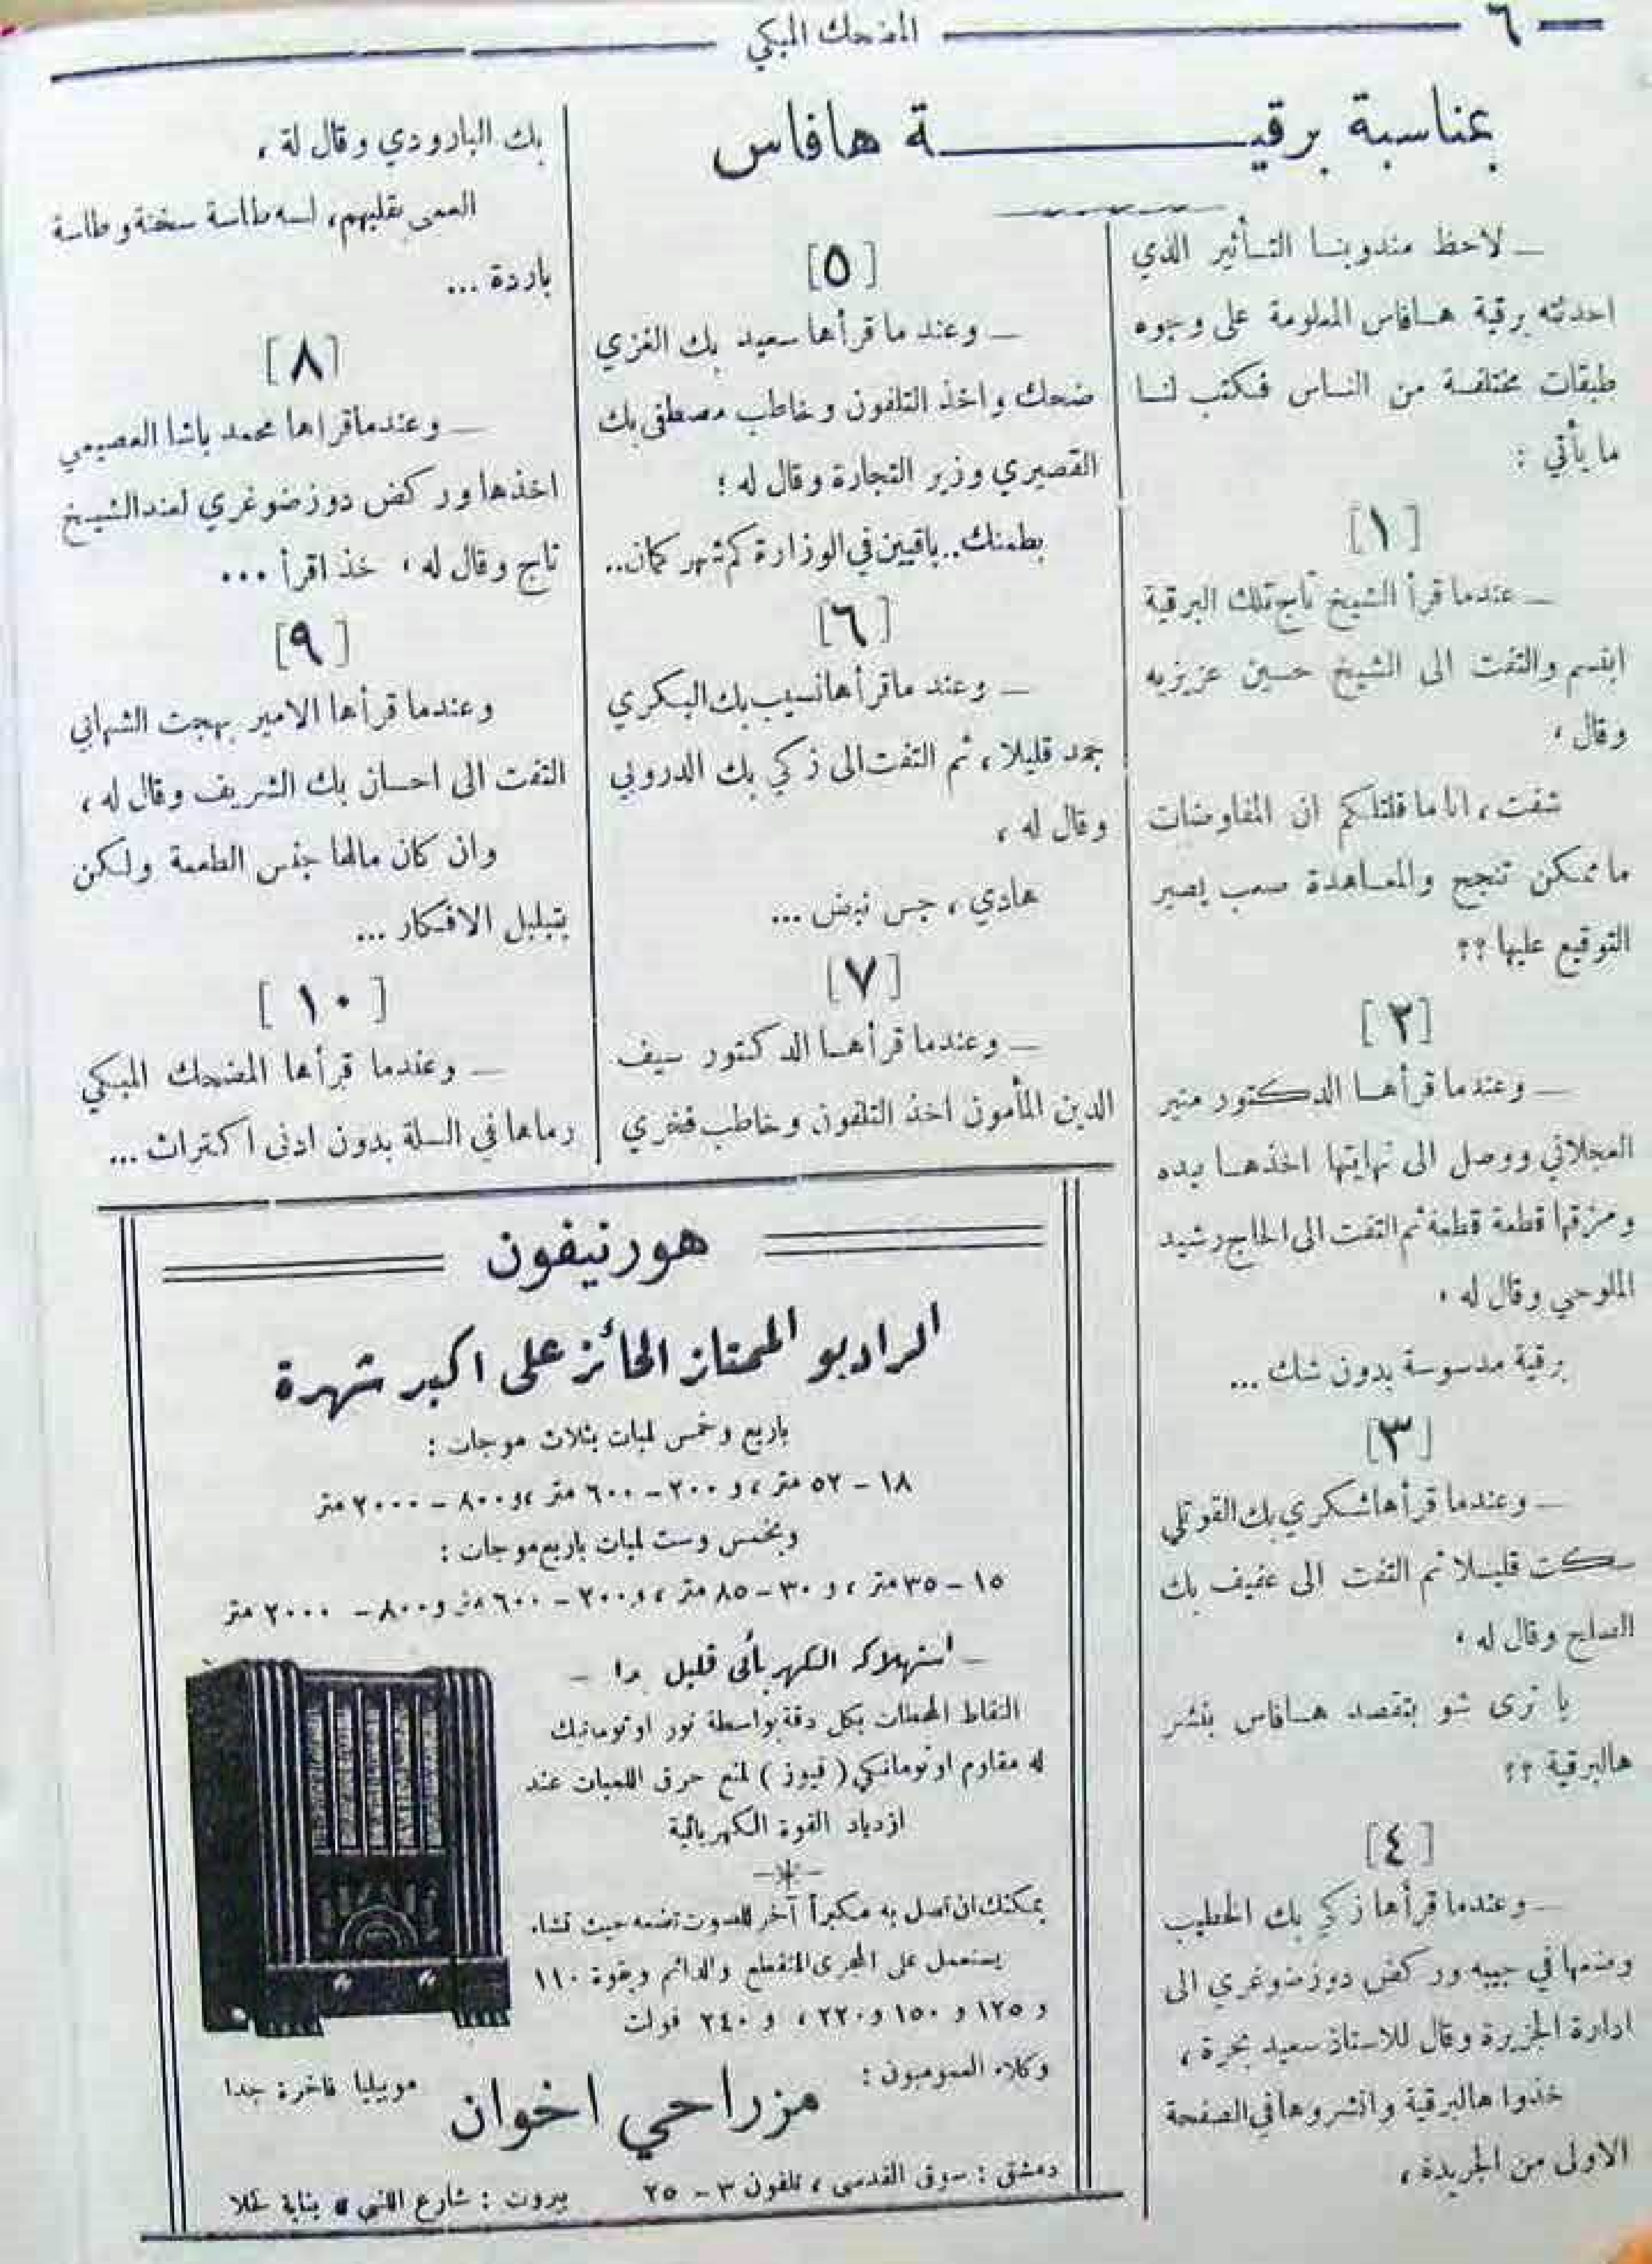 ٦
المضحك المبكي
بمناسبة برقيـــــة هافاس
ــ لاحظ مندوبنا التأثير الذي
احدثته برقية هافاس المعلومة على وجوه
طبقات مختلفة من الناس فكتب لنا
ما يأتي :
[١]
ــ عندما قرأ الشيخ تاج تلك البرقية
ابتسم والتفت الى الشيخ حسين عزيزيه
وقال ،
شفت ، انا ما قلتلكم ان المفاوضات
ما ممكن تنجح والمعاهدة صعب يصير
التوقيع عليها ؟؟
[٢]
ــ وعندما قرأها الدكتور منير
العجلاني ووصل الى نهايتها اخذها بيده
ومزقها قطعة قطعة ثم التفت الى الحاج رشيد
الملوحي وقال له ،
برقية مدسوسة بدون شك ...
[٣]
ــ وعندما قرأها شكري بك القوتلي
سكت قليلا ثم التفت الى عفيف بك
الصلح وقال له ،
يا ترى شو بتقصد هافاس بنشر
هالبرقية ؟؟
[٤]
ــ وعندما قرأها زكي بك الخطيب
وضعها في جيبه وركض دوز ضوغري الى
ادارة الجزيرة وقال للاستاذ سعيد بحرة ،
خذوا هالبرقية وانشروها في الصفحة
الاولى من الجريدة ،
[٥]
ــ وعند ما قرأها سعيد بك الغزي
ضحك واخذ التلفون وخاطب مصطفى بك
القصيري وزير التجارة وقال له ؛
بطمنك.. باقيين في الوزارة كم شهر كمان..
[٦]
ــ وعند ماقرأها نسيب بك البكري
جمد قليلا ، ثم التفت الى زكي بك الدروبي
وقال له ،
هادي ، جس نبض ...
[٧]
ــ وعندما قرأها الدكتور سيف
الدين المأمون اخذ التلفون وخاطب فخري
بك البارودي وقال لة ،
العمى بقلبهم، لسه طاسة سخنة وطاسة
باردة ...
[٨]
ــ وعندما قراها محمد باشا العصيمي
اخذها وركض دوز ضوغري لعند الشيخ
تاج وقال له ، خذ اقرأ ...
[٩]
وعندما قرأها الامير بهجت الشهابي
التفت الى احسان بك الشريف وقال له ،
وان كان مالها جنس الطعمة ولكن
بتبلبل الافكار ...
[١٠]
ــ وعندما قرأها المضحك المبكي
رماها في السلة بدون ادنى اكتراث ...
هورنيفون
الراديو الممتاز الحائز على اكبر شهرة
باربع وخمس لمبات بثلاث موجات :
١٨ – ٥٢ متر ، و ٢٠٠ – ٦٠٠ متر ،و ٨٠٠ – ٢٠٠٠ متر
وبخمس وست لمبات باربع موجات :
١٥ – ٣٥ متر ، و ٣٠ – ٨٥ متر ، و ٢٠٠ – ٦٠٠ متر و ٨٠٠ – ٢٠٠٠ متر
– استهلاكه الكهربائي قليل جدا –
التقاط المحطات بكل دقة بواسطة نور اوتوماتيك
له مقاوم اوتوماتيكي ( فيوز ) لمنع حرق اللمبات عند
ازدياد القوة الكهربائية
–*–
يمكنك ان تصل به مكبراً آخر للصوت تضعه حيث تشاء
يستعمل على المجرى المتقطع والدائم وبقوة ١١٠
و ١٢٥ و ١٥٠ و ٢٢٠ ، و ٢٤٠ فولت
وكلاء العموميون :
مزراحي اخوان
موبيليا فاخرة جدا
دمشق : سوق القدسي ، تلفون ٣ – ٢٥
بيروت : شارع اللنبي ، بناية لحلا